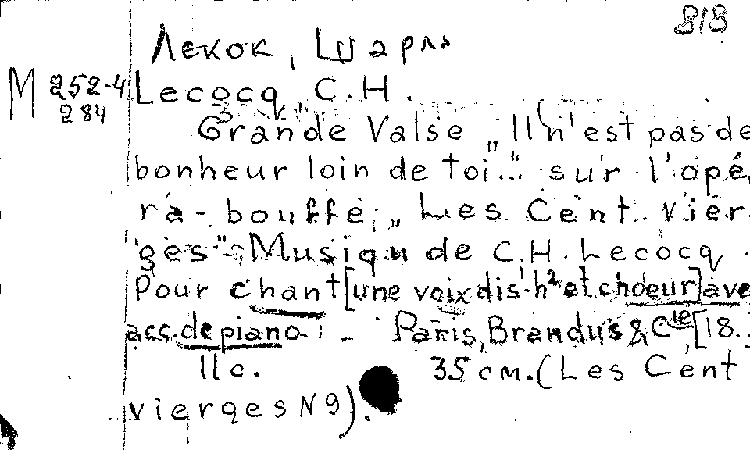 818
Лекок, Шарль
М 252-4 Lecocq C.H.
284
Grande Valse „Il n'est pas de
bonheur loin de toi..." sur l'opé-
ra-bouffe, „Les Cent vier-
ges". Musiqu de C.H. Lecocq.
Pour chant [une voix dis. h² et choeur] ave
acc. de piano. - Paris, Brandus & Cie [18..
11 c. 35 см. (Les Cent
vierges N 9).